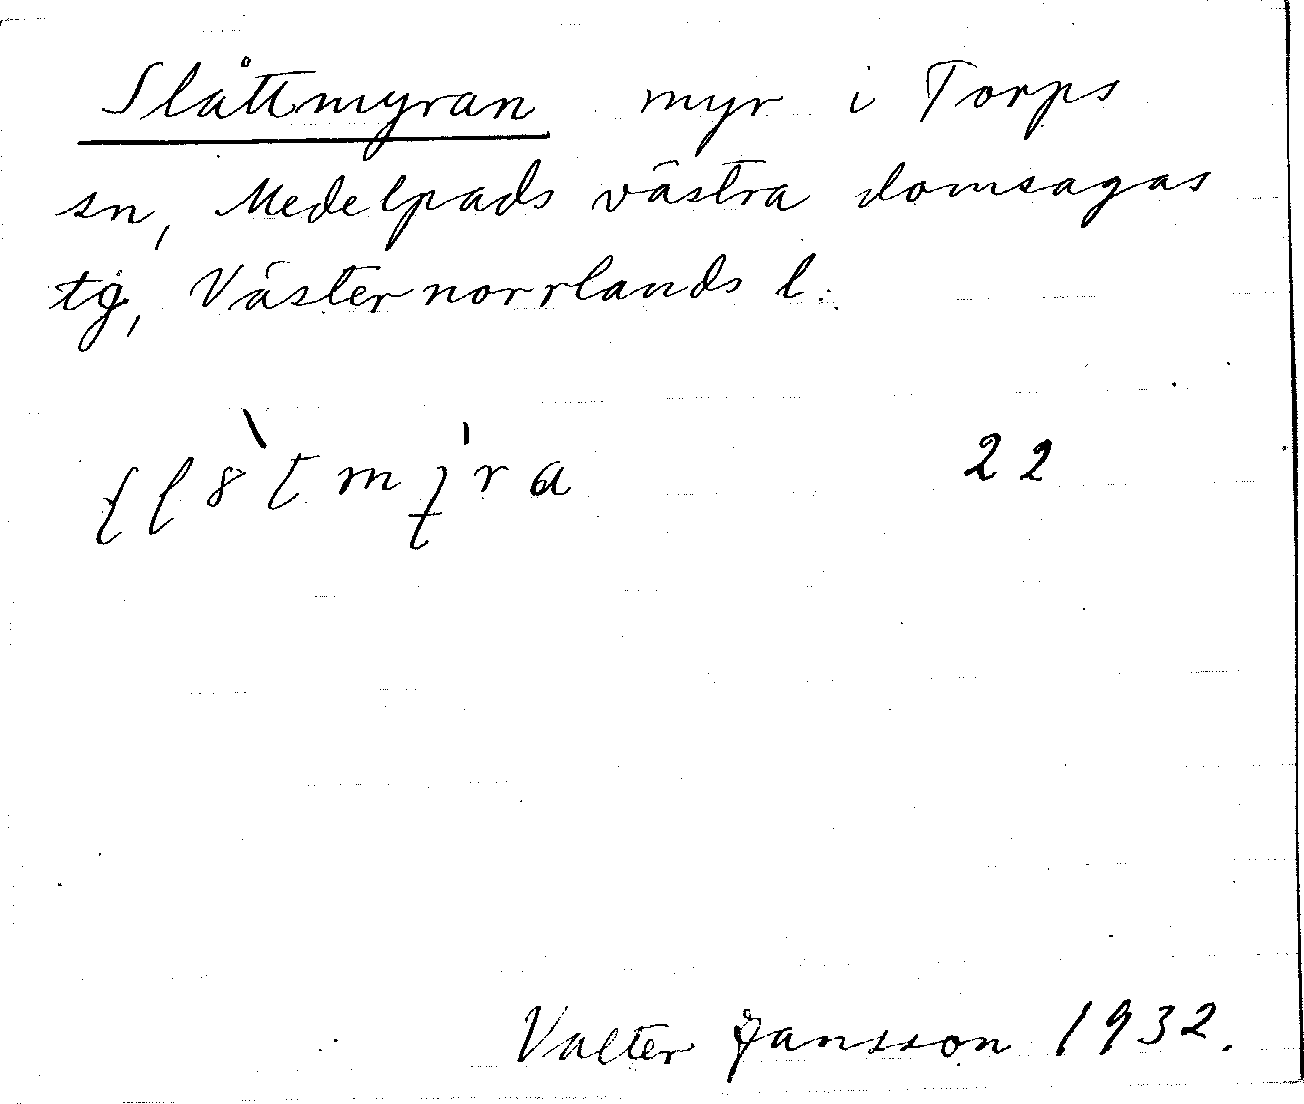 Slåttmyran myr i Torps
sn, Medelpads västra domsagas
tg, Västernorrlands l.
22
Valter Jansson 1932.